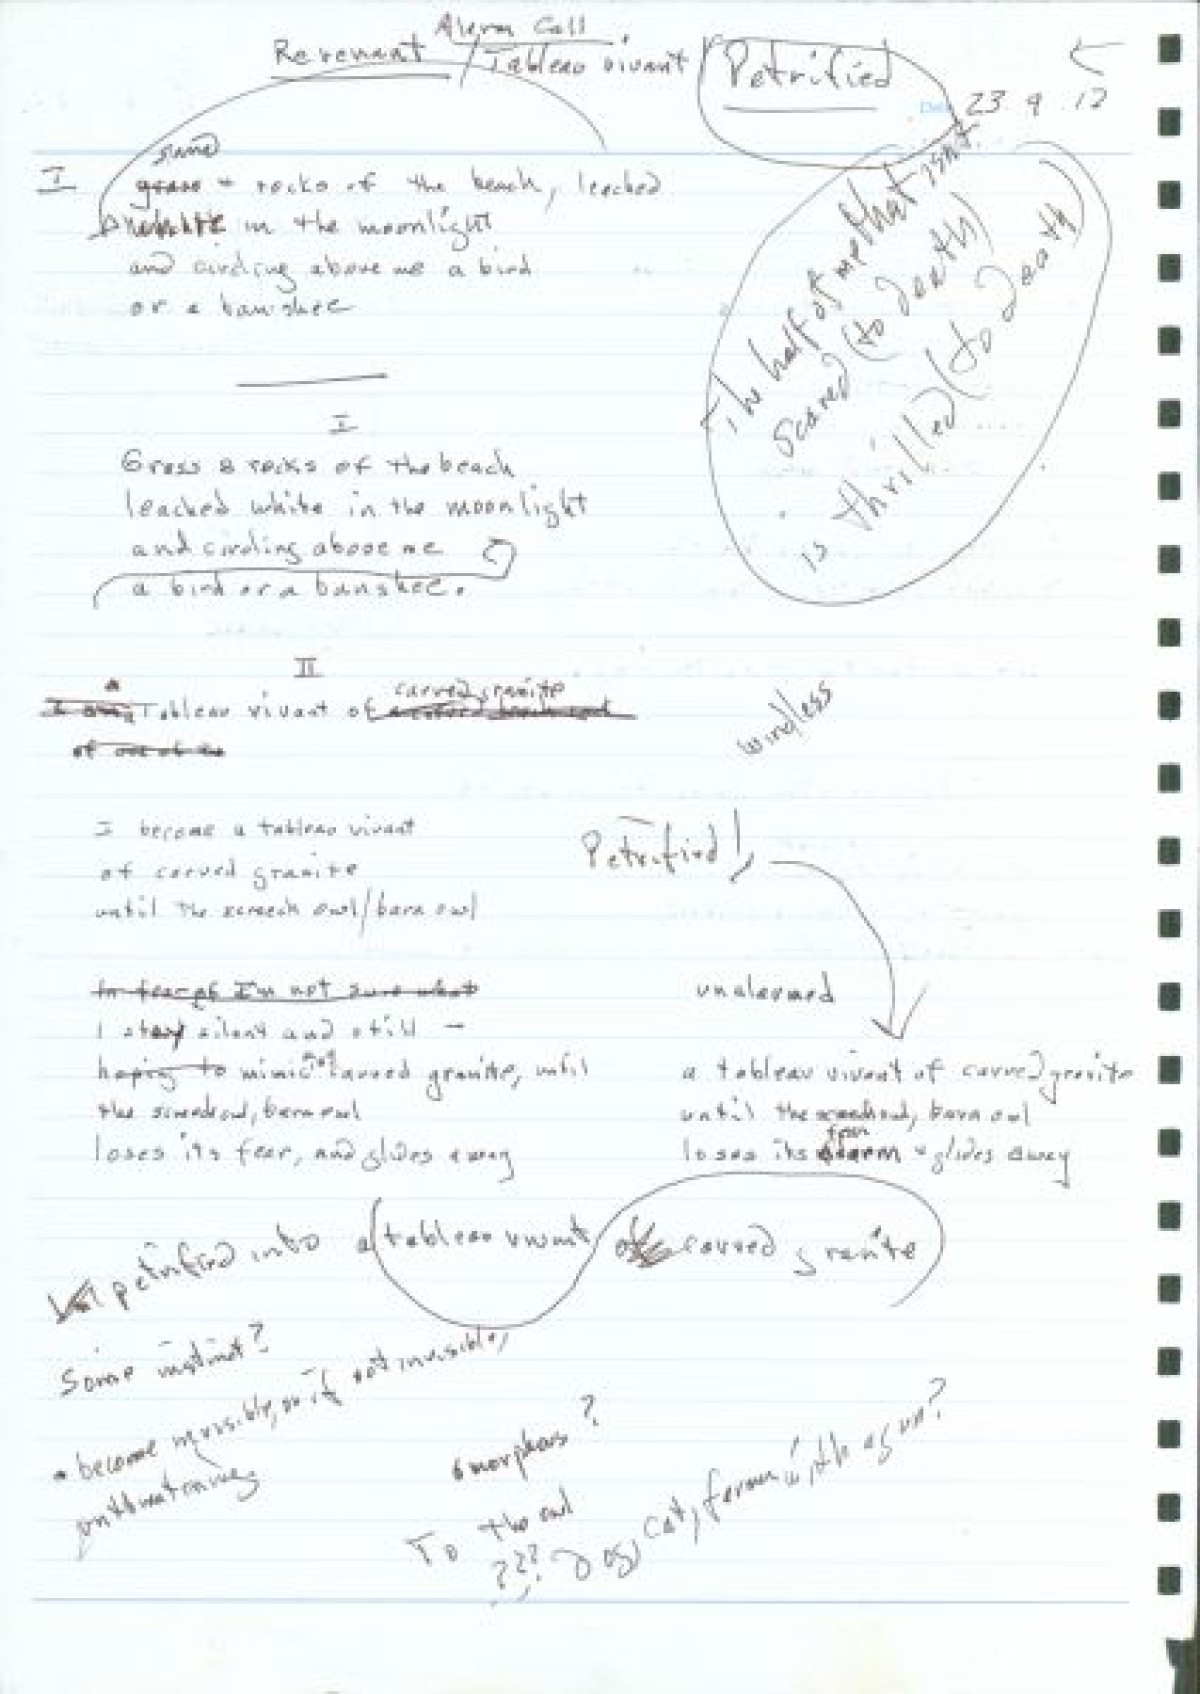 Alarm Call
Revenant / Tableau vivant / Petrified
Date 23.9.12
sand
I grass + rocks of the beach, leached
in the moonlight
and circling above me a bird
or a banshee
The half of me that isn't
scared (to death)
is thrilled (to death)
I
Grass & rocks of the beach
leached white in the moonlight
and circling above me
a bird or a banshee.
II
carved granite
I am a Tableau vivant of
windless
I become a tableau vivant
of carved granite
until the screech owl/barn owl
Petrified!
In fear of I'm not sure what
I stay silent and still –
hoping to mimic carved granite, until
the screech owl, barn owl
loses its fear, and glides away
unalarmed
a tableau vivant of carved granite
until the screech owl, barn owl
fear
loses its alarm & glides away
petrified into a tableau vivant of carved granite
Some instinct?
become invisible, or if not invisible,
unthreatening
amorphous?
To the owl
??? Dog, cat, farmer with a gun?